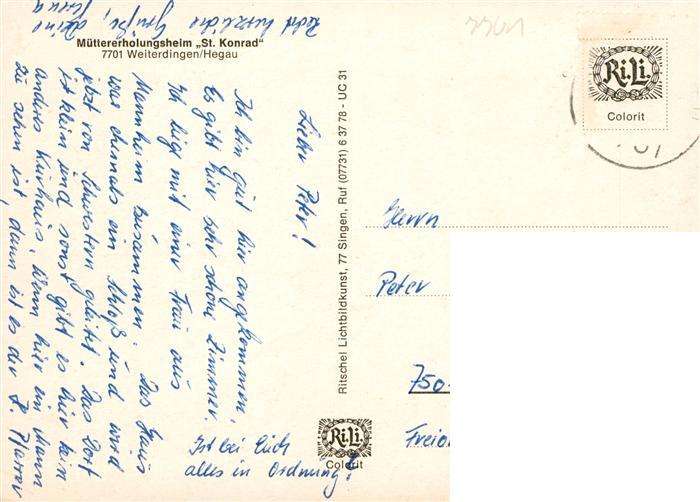 Müttererholungsheim „St. Konrad"
7701 Weiterdingen/Hegau
Lieber Peter!
Ich bin gut hier angekommen.
Es gibt hier sehr schöne Zimmer.
Ich liege mit einer Frau aus
Mannheim zusammen. Das Haus
war ehemals ein Schloß und wird
jetzt von Schwestern geleitet. Das Dorf
ist klein und sonst gibt es hier kein
anderes Kurhaus. Wenn hier ein Mann
zu sehen ist, dann ist es der H. Pfarrer
Recht herzliche Grüße, deine
Ist bei Euch
alles in Ordnung?
Ritschel Lichtbildkunst, 77 Singen, Ruf (07731) 6 37 78 - UC 31
Ri.Li.
Colorit
7701
Ri.Li.
Colorit
Herrn
Peter
750